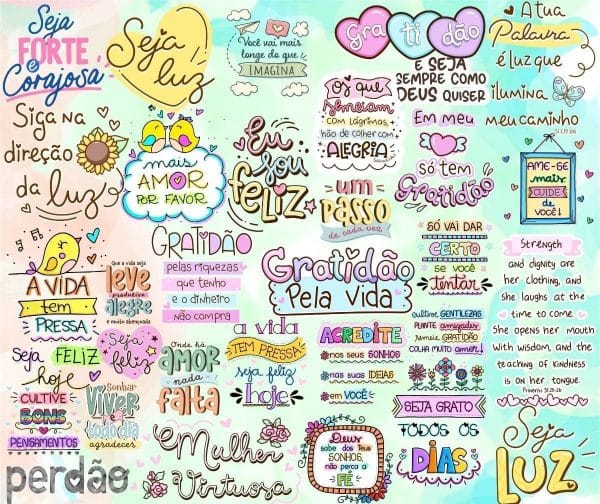 Seja
FORTE
e
Corajosa
Seja
luz
Você vai mais
longe do que
IMAGINA
Gratidão
E SEJA
SEMPRE COMO
DEUS QUISER
A tua
Palavra
é luz que
ilumina
meu caminho
Siga na
direção
da luz
mais
AMOR
POR FAVOR
Eu
sou
feliz
Os que
semeiam
com lágrimas,
hão de colher com
ALEGRIA
Em meu
Só tem
Gratidão
um
PASSO
de cada vez
AME-SE
mais
CUIDE
de
VOCÊ!
A VIDA
tem
PRESSA
Seja FELIZ
hoje
Que a vida seja
leve
produtiva
alegre
e muito abençoada
GRATIDÃO
pelas riquezas
que tenho
e o dinheiro
não compra
Gratidão
Pela Vida
SÓ VAI DAR
CERTO
SE VOCÊ
tentar
Strength
and dignity are
her clothing, and
she laughs at the
time to come
She opens her mouth
with wisdom, and the
teaching of kindness
is on her tongue.
Proverbs 31:25-26
Seja
feliz
Onde há
AMOR
nada
falta
a vida
TEM PRESSA
seja feliz
hoje
ACREDITE
nos seus SONHOS
nas suas IDEIAS
em VOCÊ!
cultive GENTILEZAS
PLANTE amizades
semeie GRATIDÃO
COLHA MUITO amor!
CULTIVE
BONS
PENSAMENTOS
Sonhar
VIVER
e todo dia
agradecer
SEJA GRATO
TODOS OS
DIAS
perdão
Mulher
Virtuosa
Deus
sabe dos teus
SONHOS,
não perca a
FÉ
Seja
LUZ